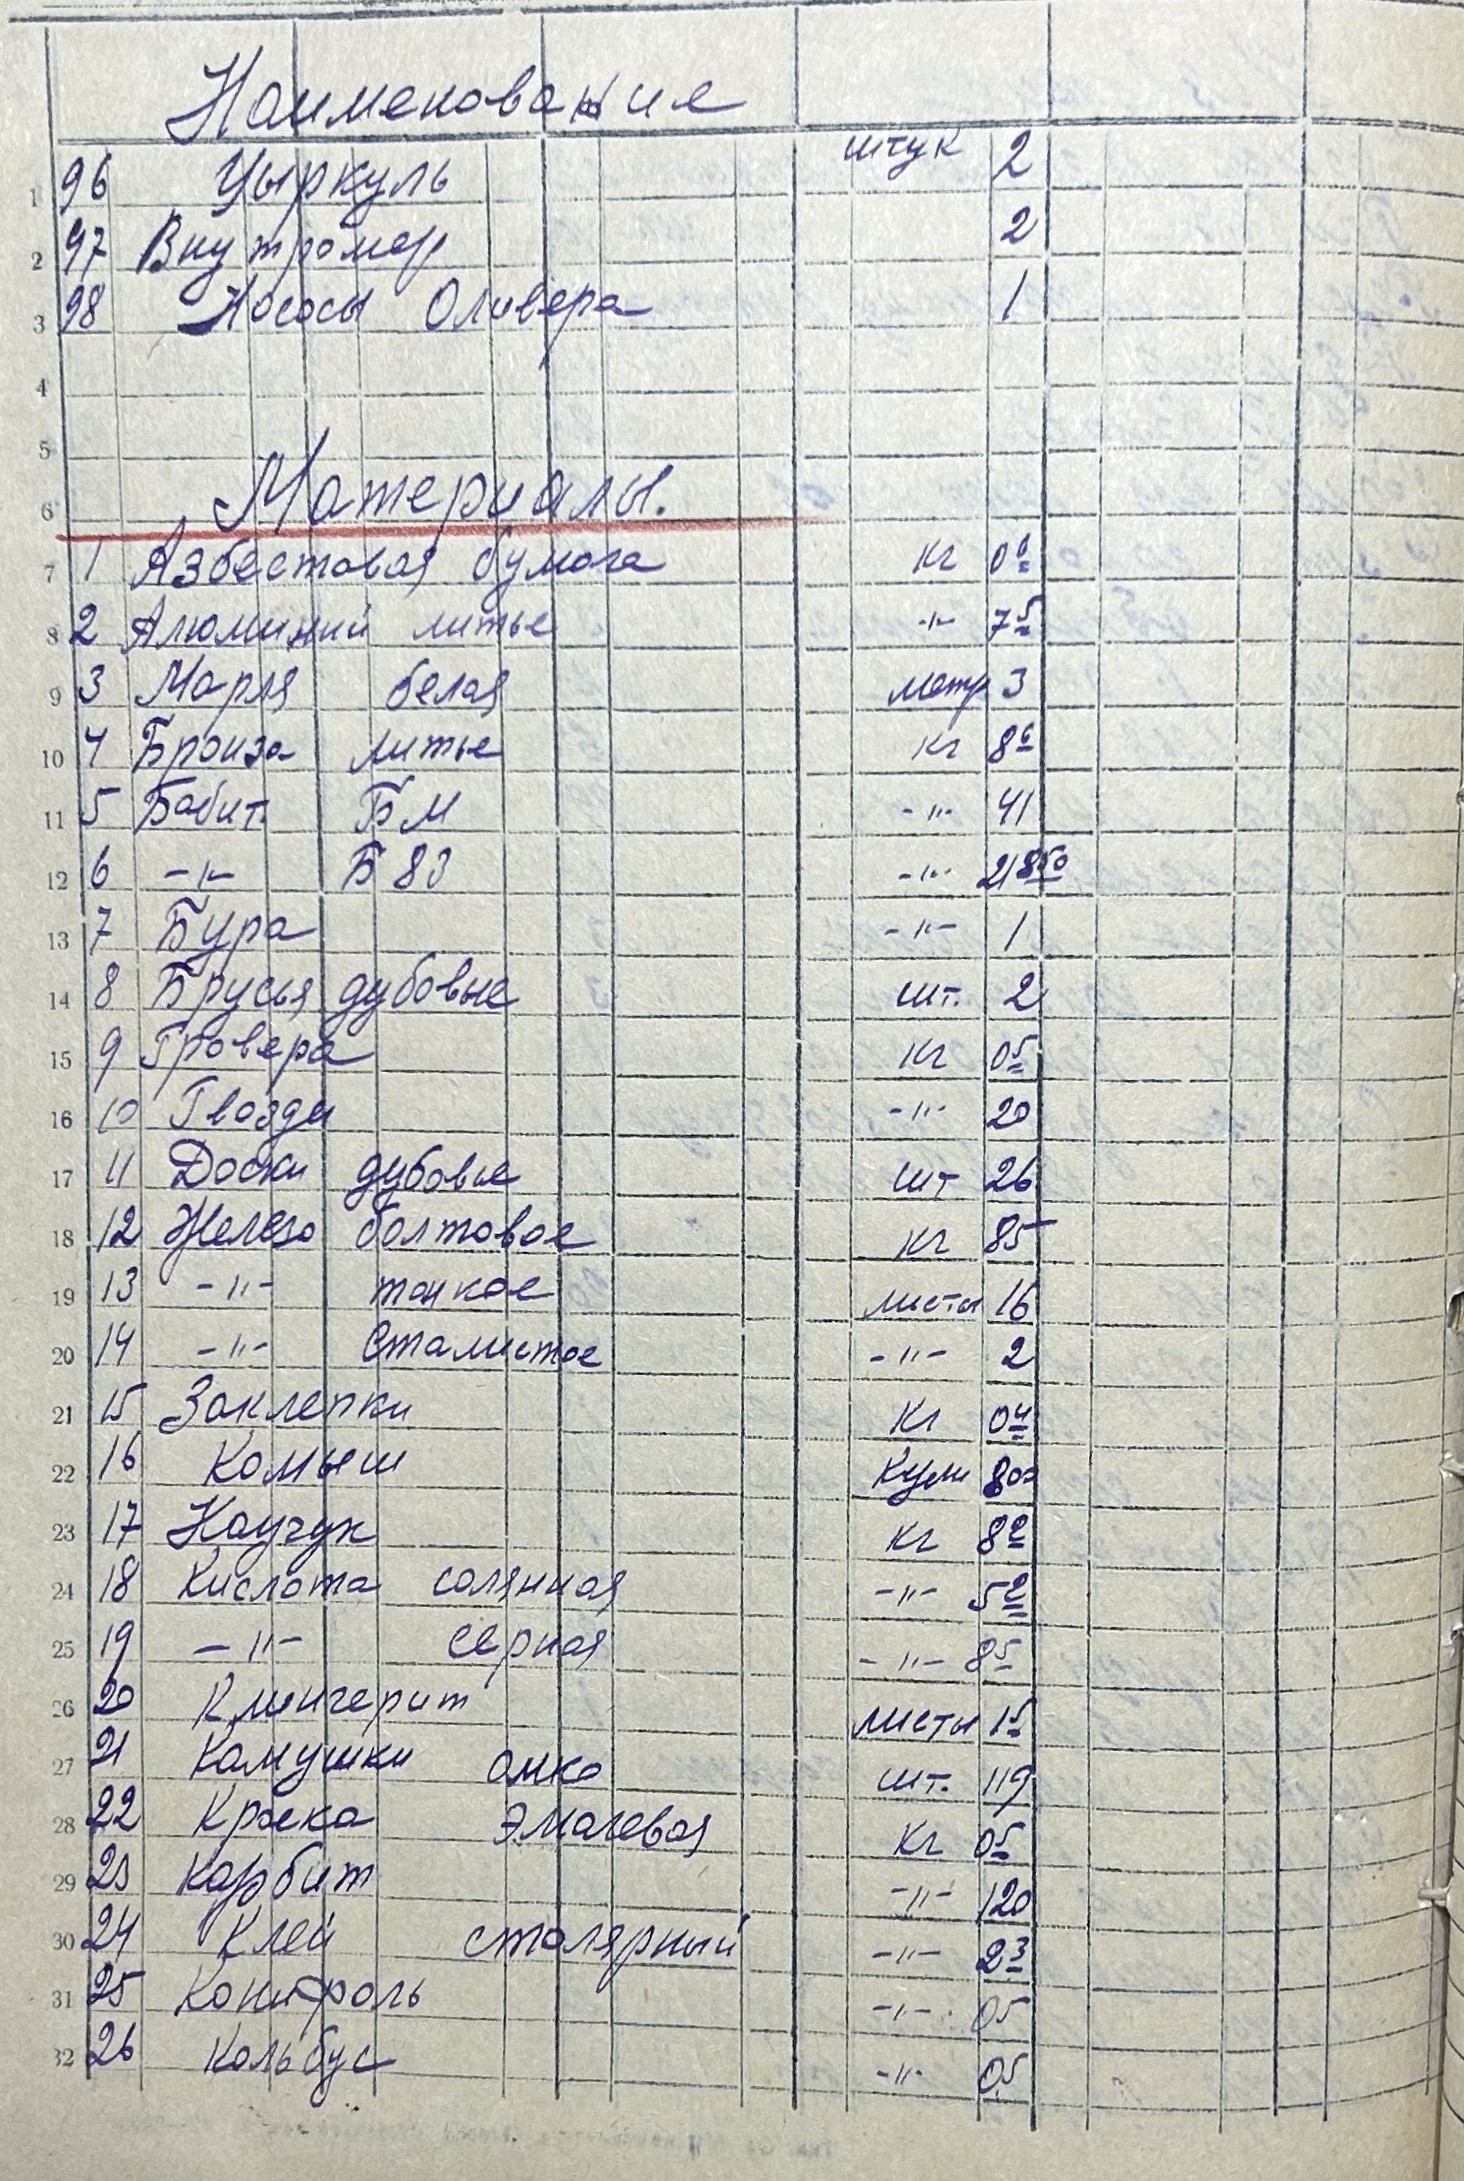 Наименование
1 96 Цыркуль штук 2
2 97 Внутромер 2
3 98 Насосы Оливера 1
4
5
6 Материалы.
7 1 Азбестовая бумага кг 0 6
8 2 Алюминий литье -"- 7 5
9 3 Марля белая метр 3
10 4 Бронза литье кг 8 6
11 5 Бабит БМ -"- 41
12 6 -"- Б 83 -"- 218 50
13 7 Бура -"- 1
14 8 Брусья дубовые шт. 2
15 9 Гровера кг 0 5
16 10 Гвозди -"- 20
17 11 Доски дубовые шт 26
18 12 Железо болтовое кг 85
19 13 -"- тонкое листы 16
20 14 -"- Сталистое -"- 2
21 15 Заклепки кг 0 4
22 16 Комыш Кули 800
23 17 Каучук кг 8 2
24 18 Кислота солянная -"- 5 2
25 19 -"- серная -"- 8 5
26 20 Клингерит листы 1 5
27 21 Камушки шт. 119
28 22 Краска Эмалевая кг 0 5
29 23 Карбит -"- 120
30 24 Клей столярный -"- 2 3
31 25 -"- 0 5
32 26 -"- 0 5